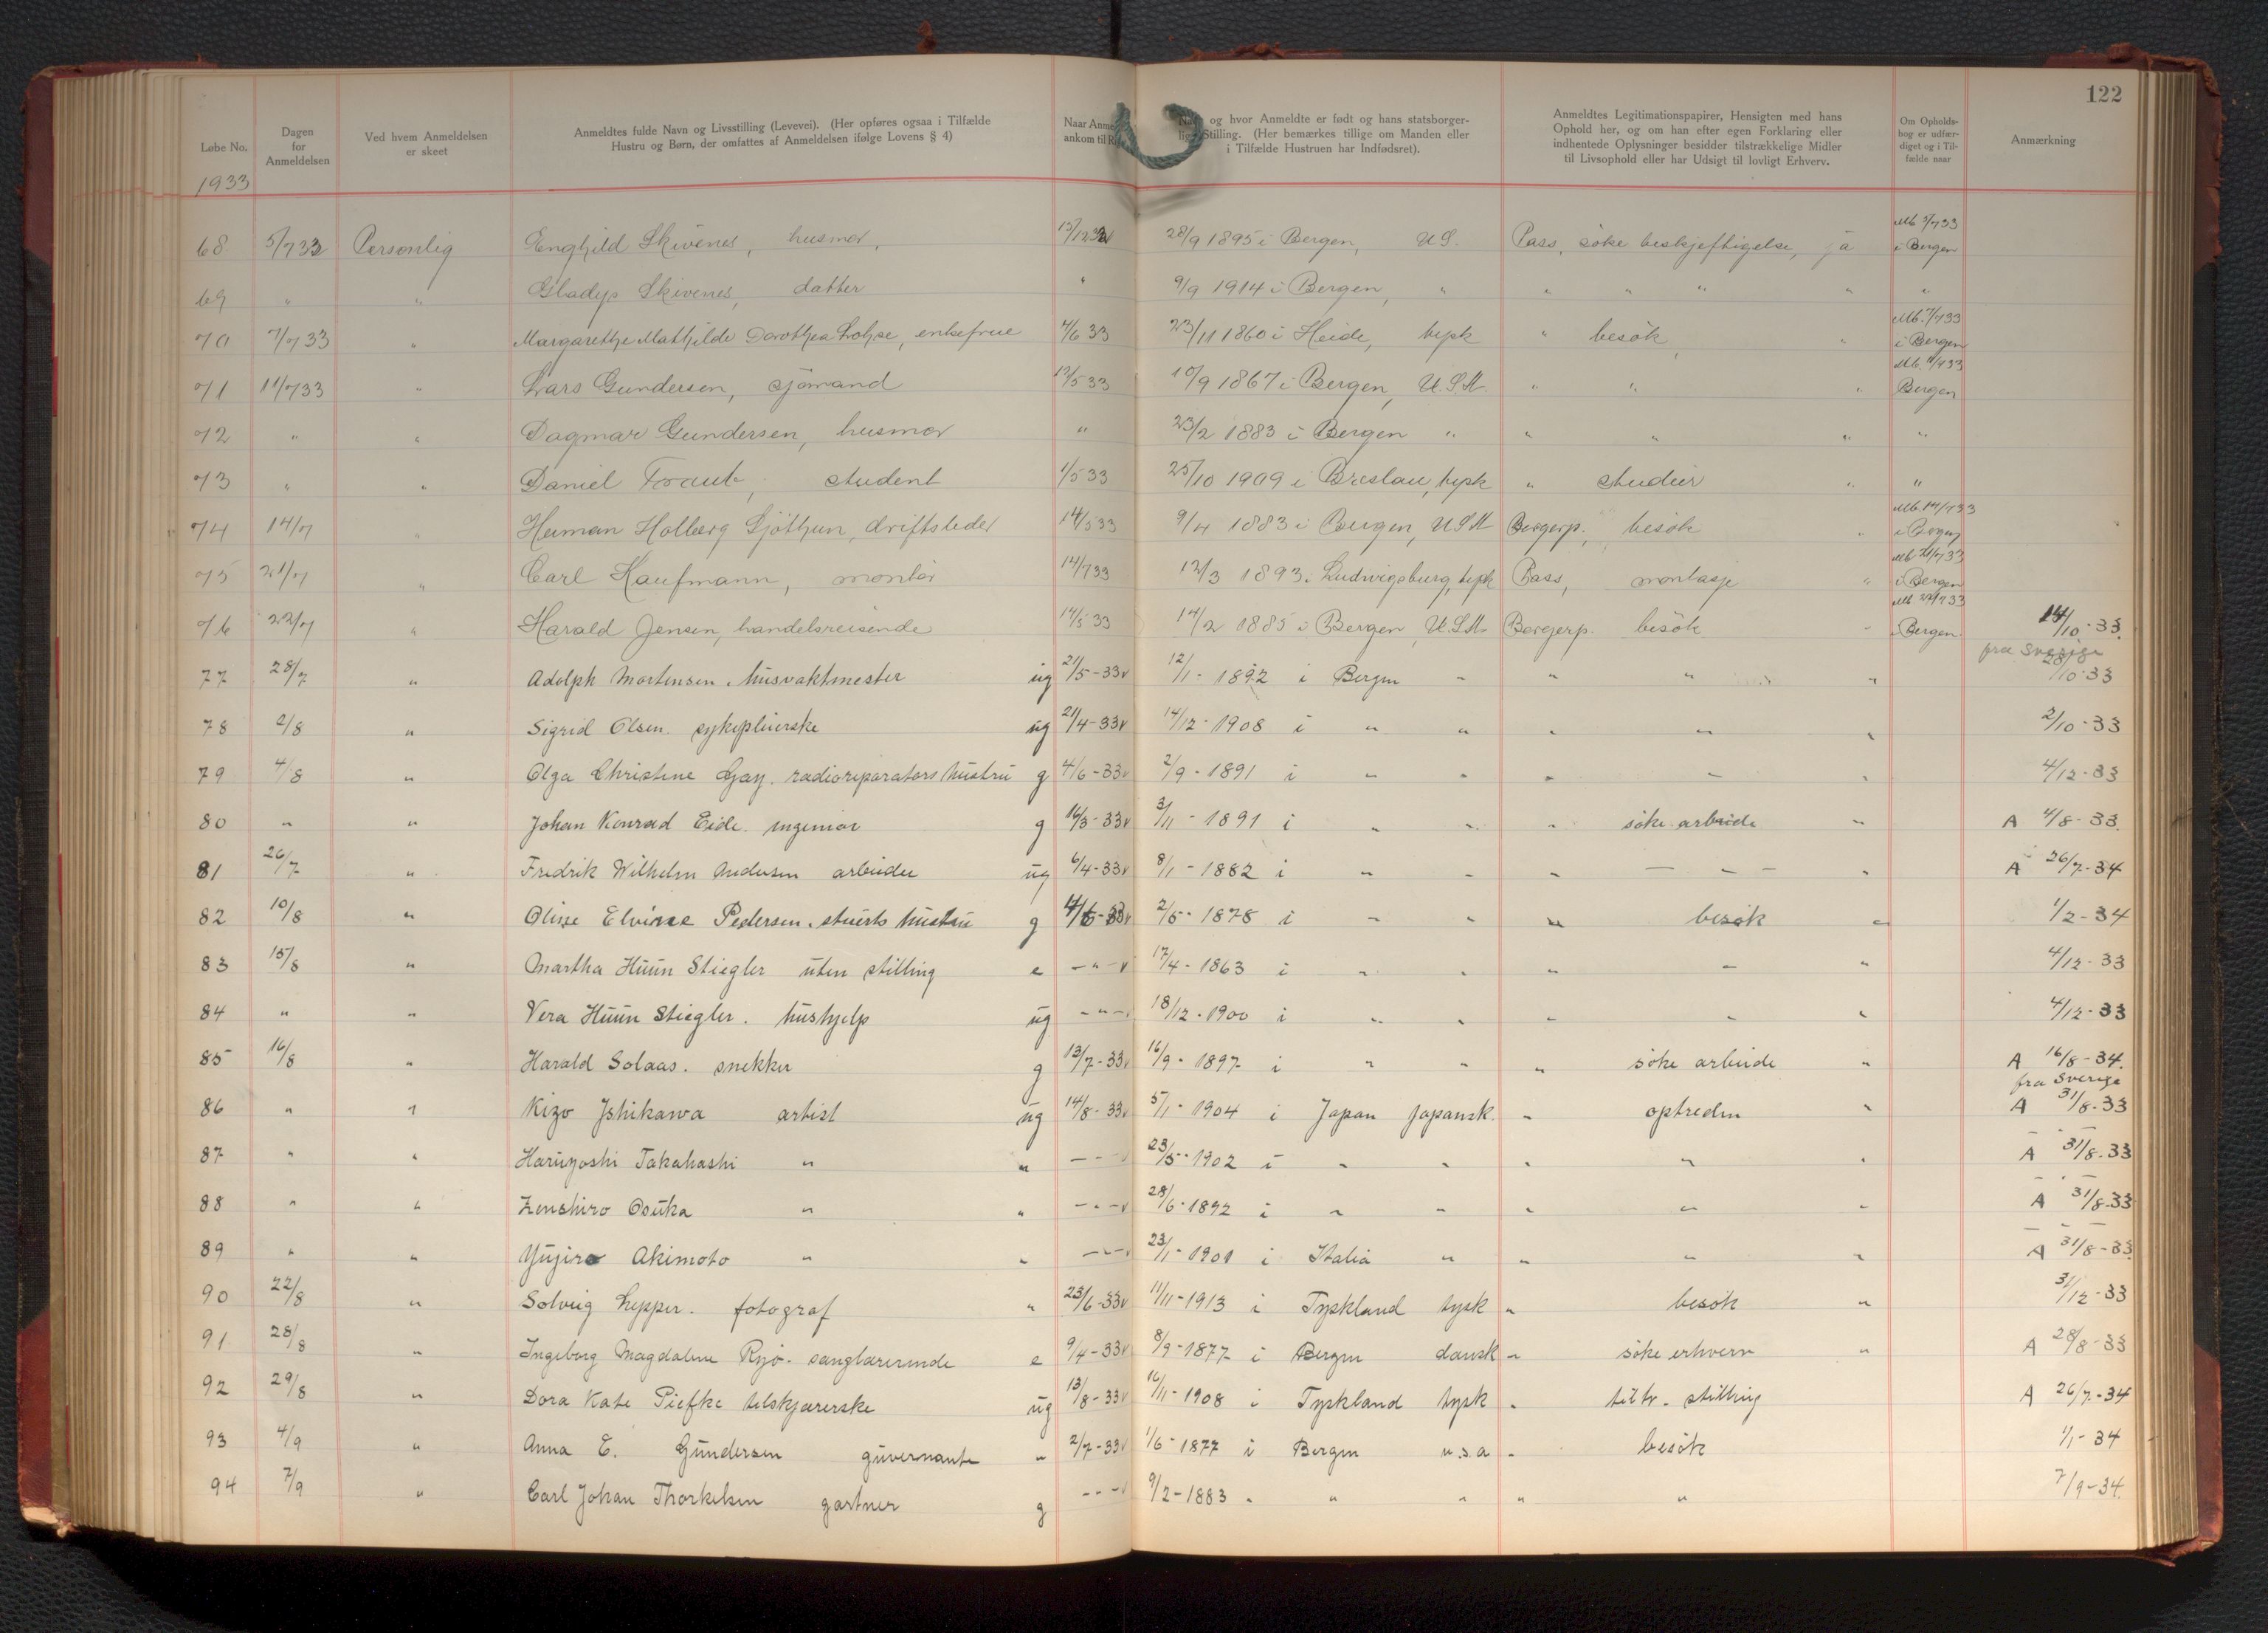 122
Løbe No.
Dagen
for
Anmeldelsen
Ved hvem Anmeldelsen
er skeet
Anmeldtes fulde Navn og Livsstilling (Levevei). (Her opføres ogsaa i Tilfælde
Hustru og Børn, der omfattes af Anmeldelsen ifølge Lovens § 4)
Naar Anme
ankom til R
og hvor Anmeldte er født og hans statsborger-
lig Stilling. (Her bemærkes tillige om Manden eller
i Tilfælde Hustruen har Indfødsret).
Anmeldtes Legitimationspapirer, Hensigten med hans
Ophold her, og om han efter egen Forklaring eller
indhentede Oplysninger besidder tilstrækkelige Midler
til Livsophold eller har Udsigt til lovligt Erhverv.
Om Opholds-
bog er udfær-
diget og i Til-
fælde naar
Anmærkning
1933
68 5/7 33 Personlig Enghild Skivenes, husmor, 28/9 1895 i Bergen, U.S. Pass, søke beskjeftigelse, ja Mb 5/7 33 i Bergen
69 " " Gladys Skivenes, datter " 9/9 1914 i Bergen, " " " " " "
70 7/7 33 " Margarethe Mathilde Dorothea Lohse, enkefrue 7/6 33 23/11 1860 i Heide, tysk " besøk " Mb. 7/7 33 i Bergen
71 11/7 33 " Lars Gundersen, sjømand 12/5 33 10/9 1867 i Bergen, U.S.A. " " " Mb. 11/7 33 Bergen
72 " " Dagmar Gundersen, husmor " 23/2 1883 i Bergen " " " " "
73 " " Daniel Traub, student 1/5 33 25/10 1909 i Breslau, tysk " studier " "
74 14/7 " Herman Holberg Sjøthun, driftsleder 14/5 33 9/4 1883 i Bergen, USA Borgerp., besøk " Mb. 14/7 33 i Bergen
75 21/7 " Carl Kaufmann, montør 14/7 33 12/3 1893 i Ludwigsburg, tysk Pass, montasje " Mb 21/7 33 i Bergen
76 22/7 " Harald Jensen, handelsreisende 14/5 33 14/2 1885 i Bergen, U.S.A. Borgerp. besøk " Mb 22/7 33 i Bergen 14/10-33.
fra Sverige
77 28/7 " Adolph Mortensen. husvaktmester ug 21/5-33 v 12/1-1892 i Bergen " " " " 28/10-33
78 2/8 " Sigrid Olsen. sykepleierske ug 21/4-33 v 14/12-1908 i " " " " " 2/10-33
79 4/8 " Olga Christine Gay. radioreparatørs hustru g 4/6-33 v 2/9-1891 i " " " " " 4/12-33
80 " " Johan Konrad Eide. ingeniør g 16/3-33 v 3/11-1891 i " " " søke arbeide " A 4/8-33.
81 26/7 " Fredrik Wilhelm Andersen arbeider ug 6/4-33 v 8/1-1882 i " " " - " - " A 26/7-34
82 10/8 " Oline Elvine Pedersen. stuerts hustru g 4/6-33 v 2/5-1878 i " " " besøk " 1/2-34
83 15/8 " Martha Huun Stiegler uten stilling e -"- v 17/4-1863 i " " " " " 4/12-33
84 " " Vera Huun Stiegler. hushjelp ug -"- 18/12-1900 i " " " " " 4/12-33
85 16/8 " Harald Solaas. snekker g 13/7-33 v 16/9-1897 i " " " søke arbeide " A 16/8-34.
fra Sverige
86 " " Kizo Jshikawa artist ug 14/8-33 v 5/1-1904 i Japan japansk. " optreden " A 31/8-33
87 " " Haruyoshi Takahashi " " -"- 23/5-1902 i " " " " " A 31/8-33
88 " " Zenshiro Osuka " " -"- v 28/6-1892 i " " " " " A 31/8-33
89 " " Yujiro Akimoto " " -"- v 23/1-1901 i Italia " " " " A 31/8-33
90 22/8 " Solveig Lepper. fotograf " 23/6-33 v 11/11-1913 i Tyskland tysk " besøk " 31/12-33
91 28/8 " Ingeborg Magdalene Ryø. sanglærerinde e 9/4-33 v 8/9-1877 i Bergen dansk " søke erhverv " A 28/8-33
92 29/8 " Dora Kate Piefke tilskjærerske ug 13/8-33 v 16/11-1908 i Tyskland tysk " tiltr. stilling A 26/7-34
93 4/9 " Anna E. Gundersen guvernante " 2/7-33 v 1/6-1877 i Bergen u.s.a " besøk 1/1-34
94 7/9 " Carl Johan Thorkelsen gartner g -"- v 9/2-1883 " " " " " 7/9-34.